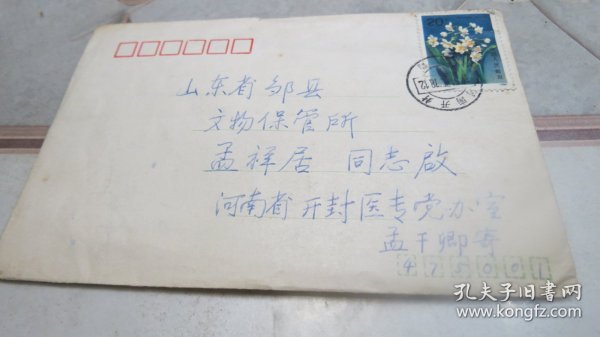 20分
山东省邹县
文物保管所
孟祥居 同志啟
河南省开封医专党办室
孟干卿寄
475001
孔夫子旧书网
www.kongfz.com